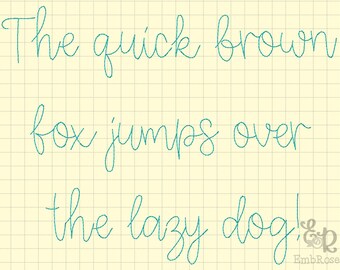 The quick brown
fox jumps over
the lazy dog!
ER
EmbRose